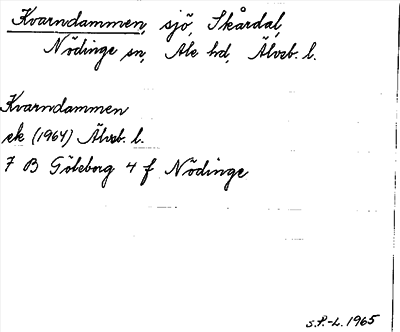 Kvarndammen, sjö, Skårdal,
Nödinge sn, Ale hd, Älvsb. l.
Kvarndammen
ek (1964) Älvsb. l.
7 B Göteborg 4 f Nödinge
S.P.-L. 1965